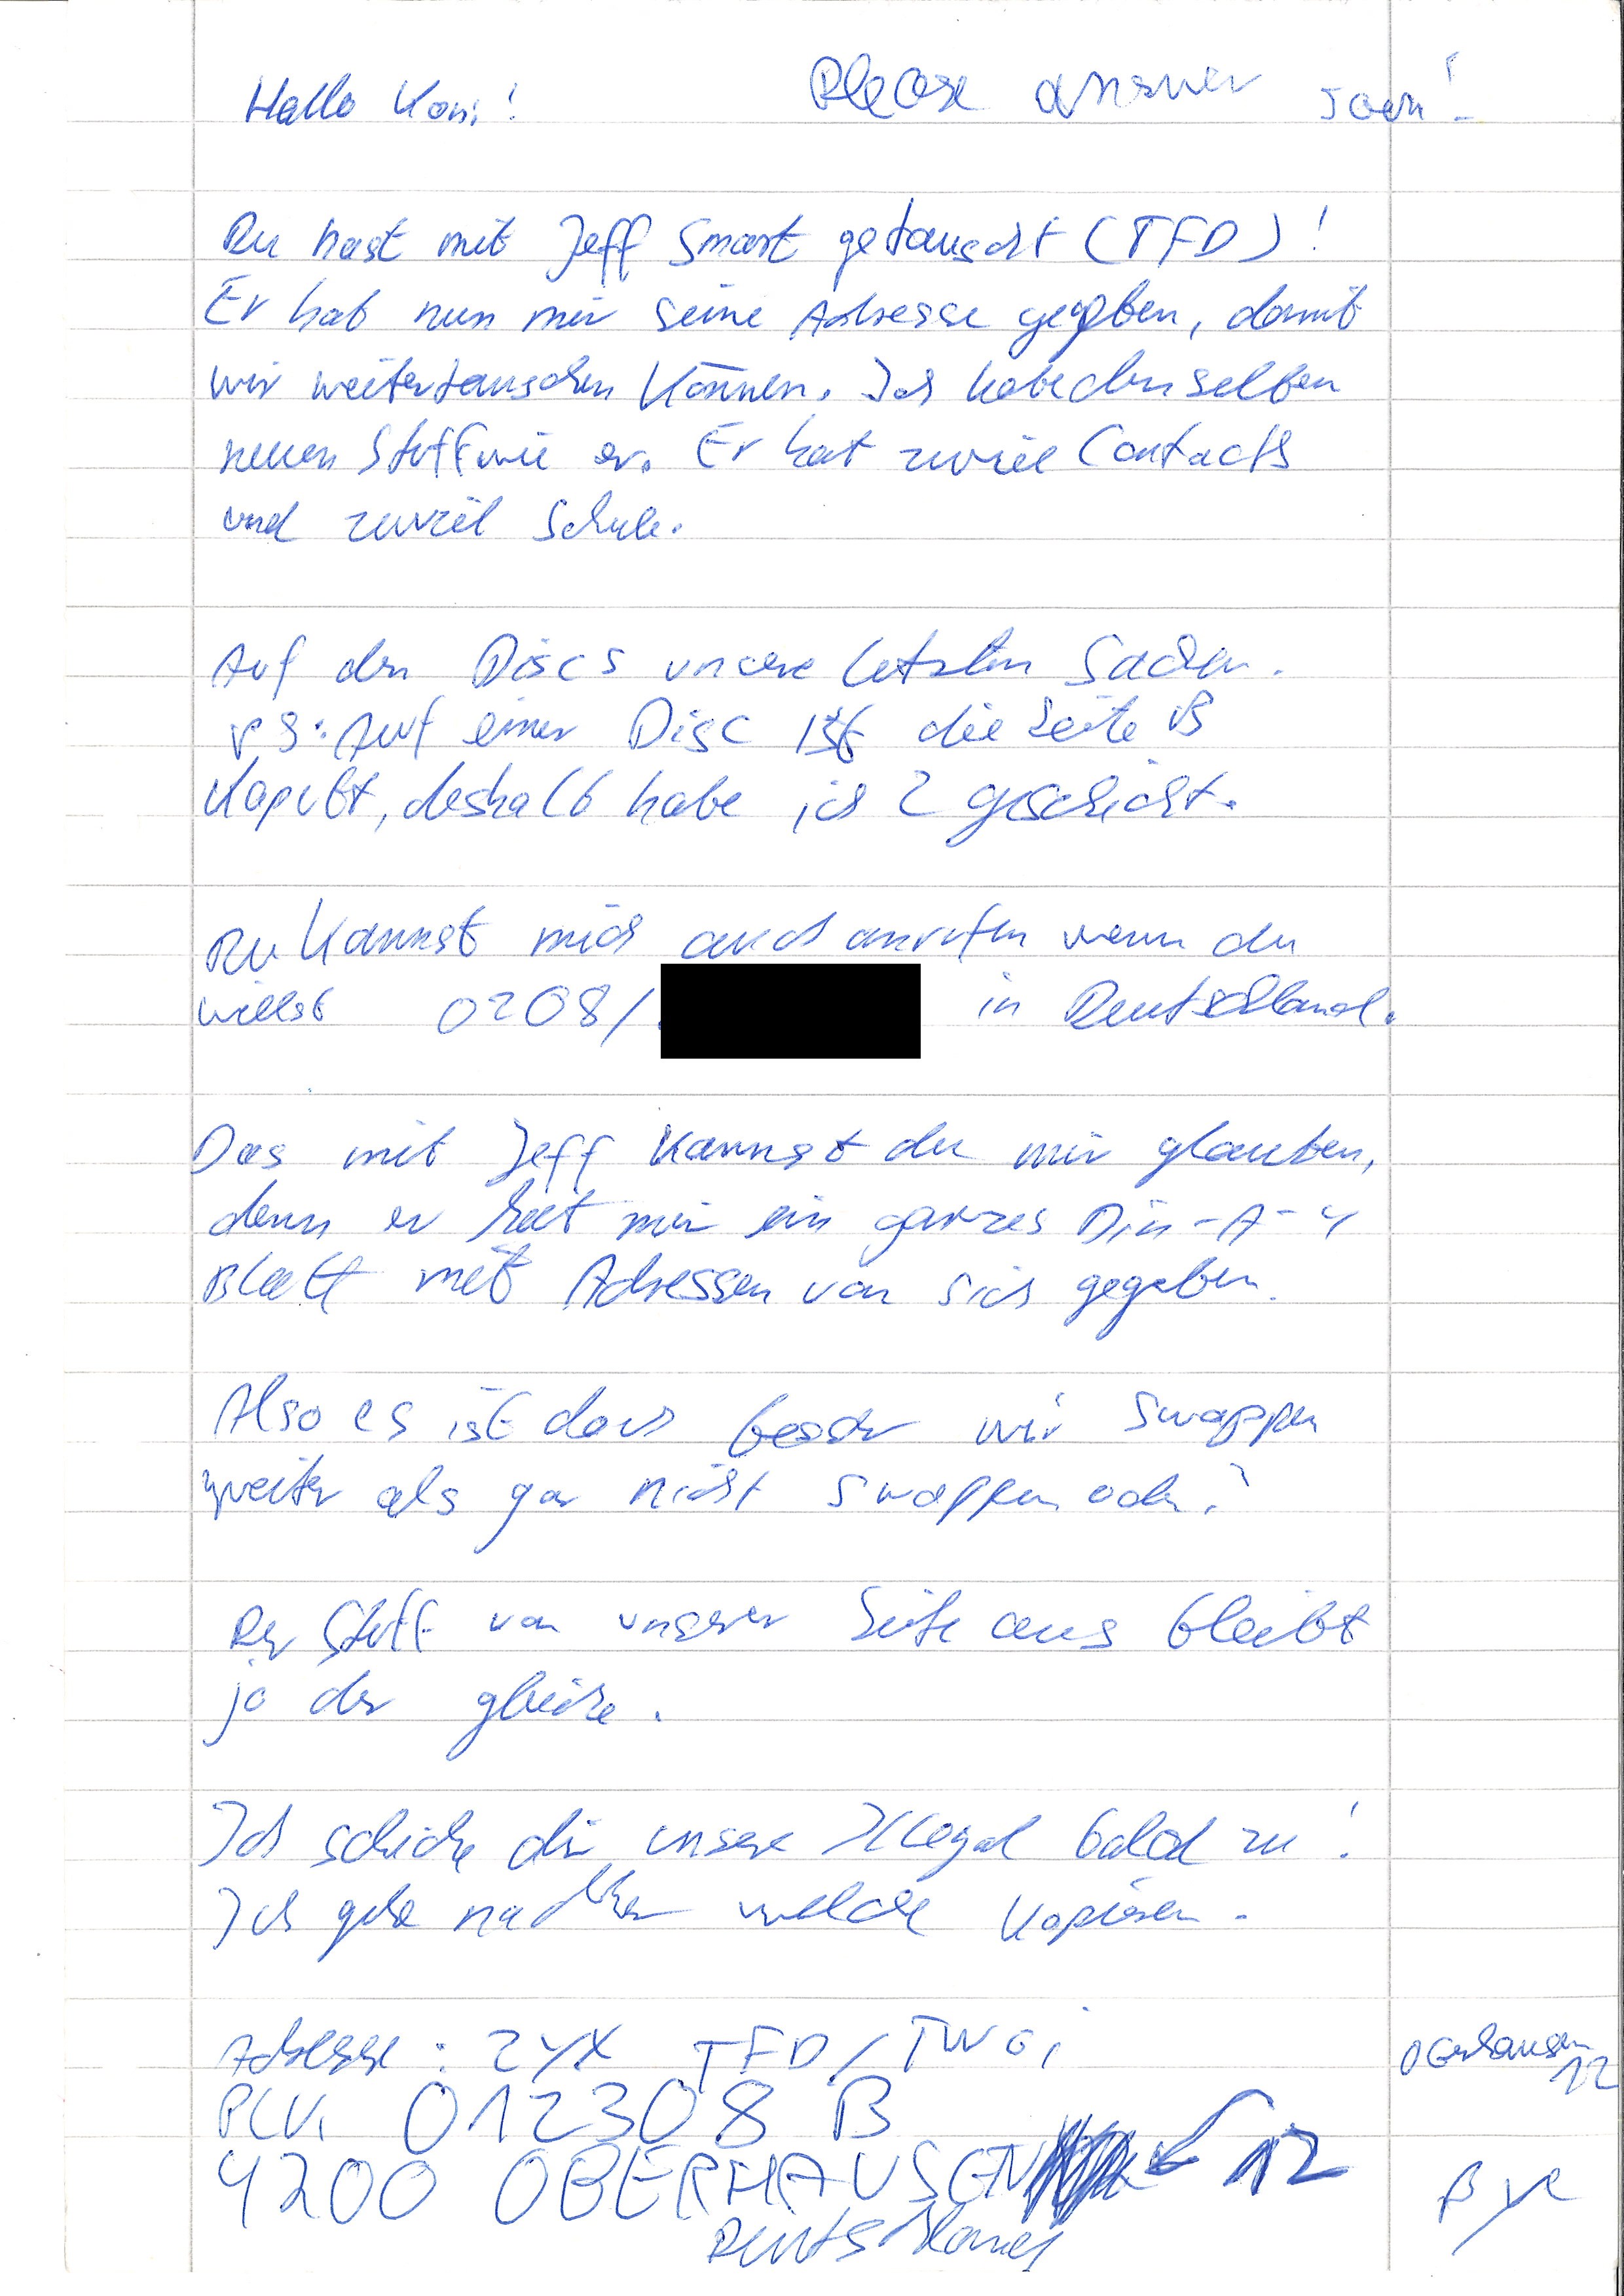 Hallo Koni! Please answer soon!
Du hast mit Jeff Smart getauscht (TFD)!
Er hat nun mir seine Adresse gegeben, damit
wir weitertauschen können. Ich habe denselben
neuen Stoff wie er. Er hat zuviel Contacts
und zuviel Schule.
Auf den Discs unsere letzten Sachen.
PS: Auf einer Disc ist die Seite B
Kaputt, deshalb habe ich 2 geschickt.
Du Kannst mich auch anrufen wenn du
willst 0208/ in Deutschland.
Das mit Jeff Kannst du mir glauben,
denn er hat mir ein ganzes Din-A-4
Blatt mit Adressen von sich gegeben.
Also es ist doch besser wir swappen
weiter als gar nicht swappen oder?
Der Stoff von unserer Seite aus bleibt
ja der gleiche.
Ich schicke dir unsere Illegal bald zu!
Ich gehe nachher welche Kopieren.
Adresse: ZYX TFD/TWG,
PLK. 012308 B
4200 OBERHAUSEN 12
Deutschland
Oberhausen
12
Bye